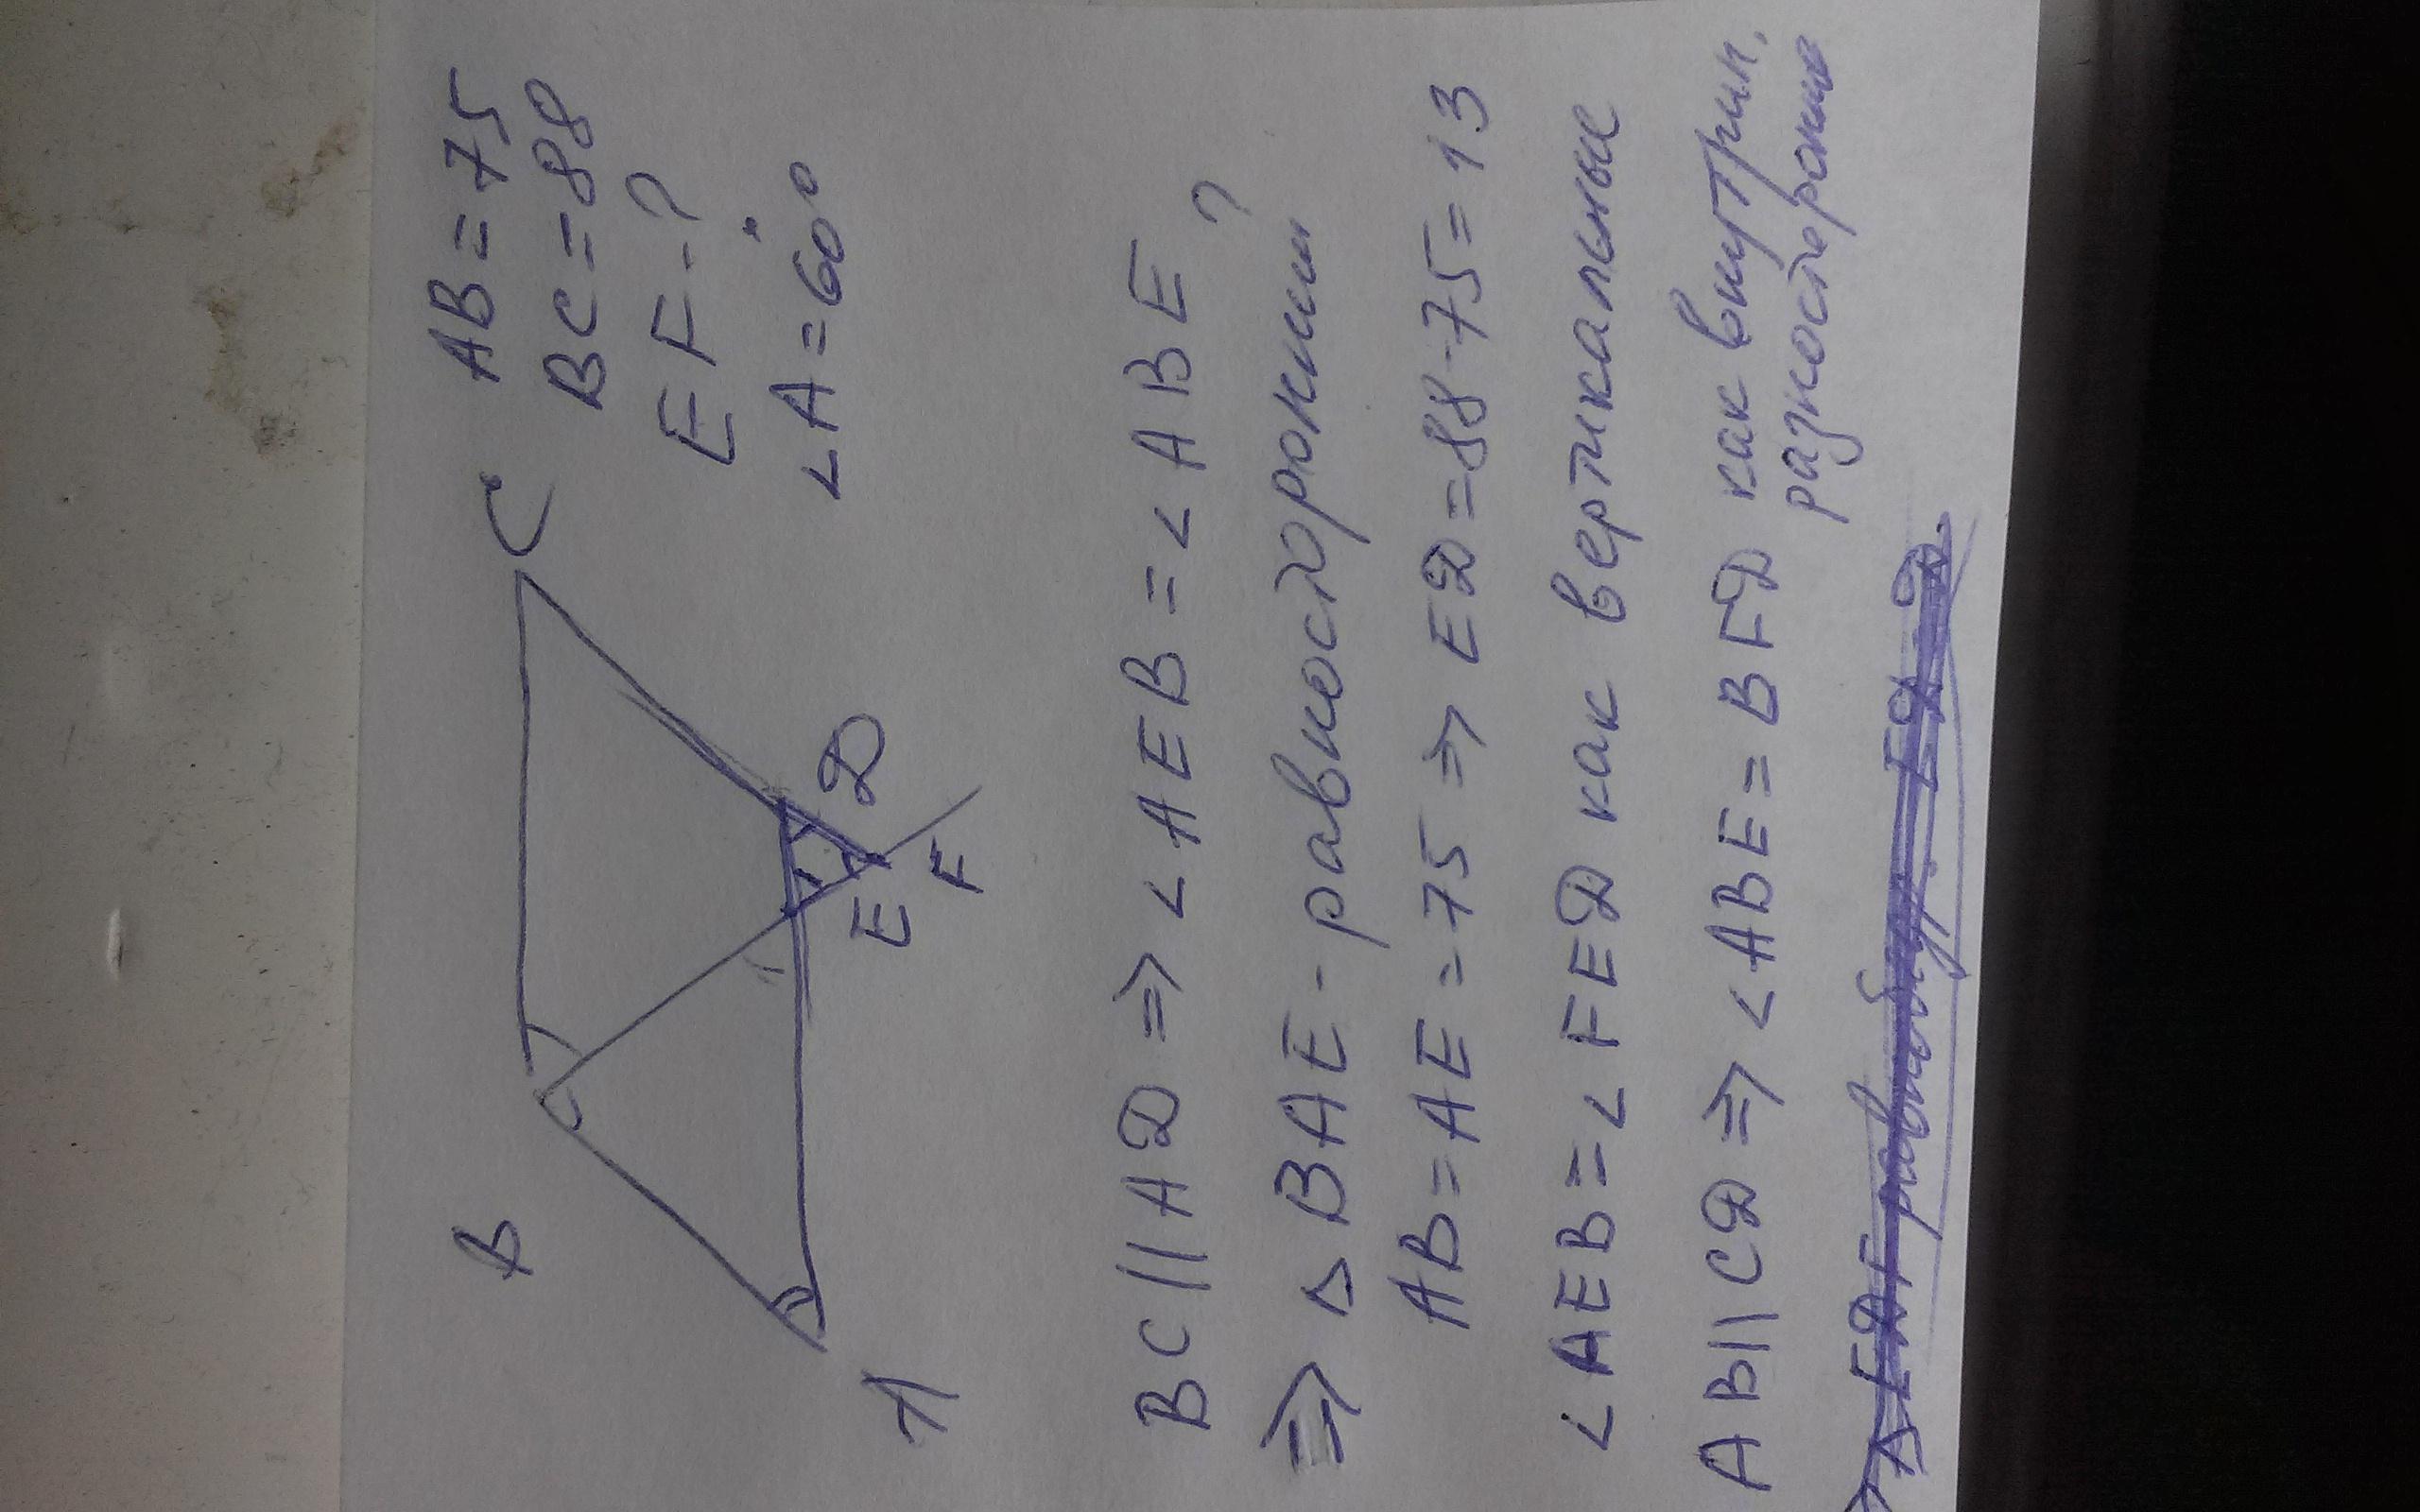 B
C
AB = 75
BC = 88
EF - ?
∠A = 60°
A
E
D
F
BC || AD ⇒ ∠AEB = ∠ABE ?
⇒ △BAE - равносторонний
AB = AE = 75 ⇒ ED = 88-75 = 13
∠AEB = ∠FED как вертикальные
AB || CD ⇒ ∠ABE = BFD как внутрин.
разносторонние